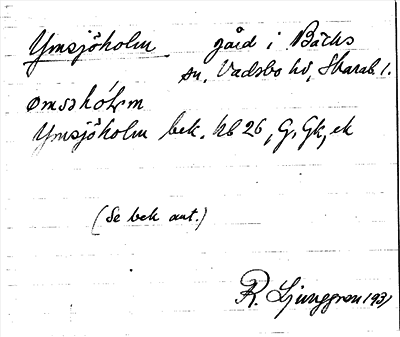 Ymsjöholm gård i Bäcks
sn, Vadsbo hd, Skarab. l.
ømsshólm
Ymsjöholm bek. hb 26, G, Gk, ek
(Se bek ant.)
R. Ljunggren 1931